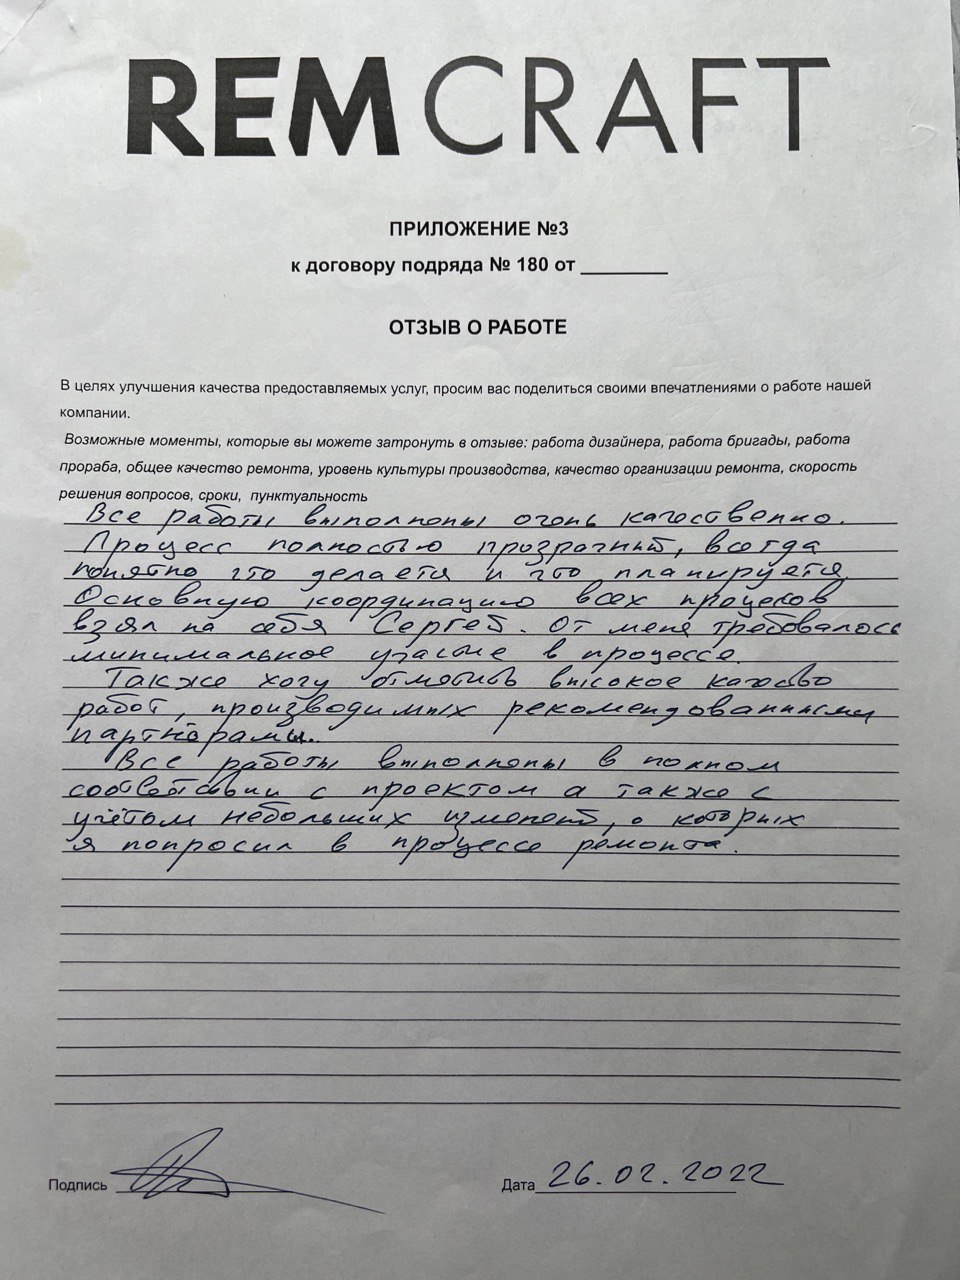 REMCRAFT
ПРИЛОЖЕНИЕ №3
к договору подряда № 180 от ________
ОТЗЫВ О РАБОТЕ
В целях улучшения качества предоставляемых услуг, просим вас поделиться своими впечатлениями о работе нашей
компании.
Возможные моменты, которые вы можете затронуть в отзыве: работа дизайнера, работа бригады, работа
прораба, общее качество ремонта, уровень культуры производства, качество организации ремонта, скорость
решения вопросов, сроки, пунктуальность
Все работы выполнены очень качественно.
Процесс полностью прозрачный, всегда
понятно что делается и что планируется
Основную координацию всех процесов
взял на себя Сергей. От меня требовалось
минимальное участие в процессе.
Также хочу отметить высокое качество
работ, производимых рекомендованными
партнёрами.
Все работы выполнены в полном
соответствии с проектом а также с
учётом небольших изменений, о которых
я попросил в процессе ремонта.
Подпись
Дата 26.02.2022